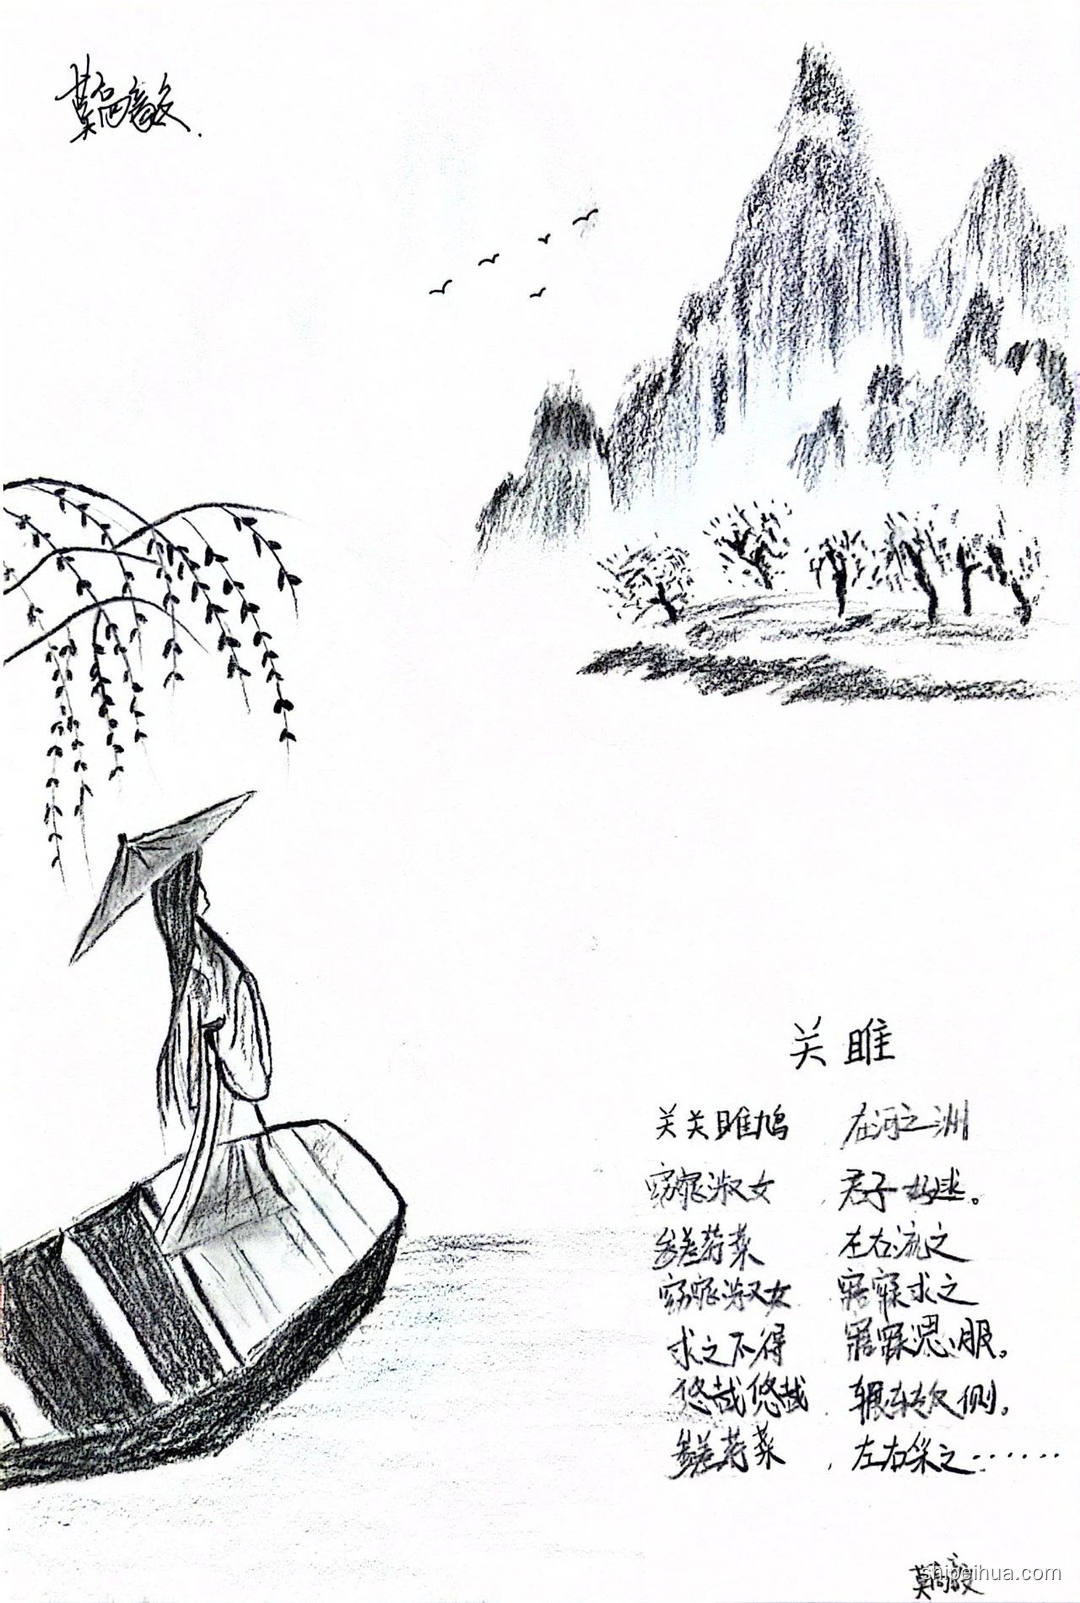 关雎
关关雎鸠 在河之洲
窈窕淑女，君子好逑。
参差荇菜 左右流之
窈窕淑女 寤寐求之
求之不得 寤寐思服。
悠哉悠哉，辗转反侧。
参差荇菜，左右采之……
shipeihua.com